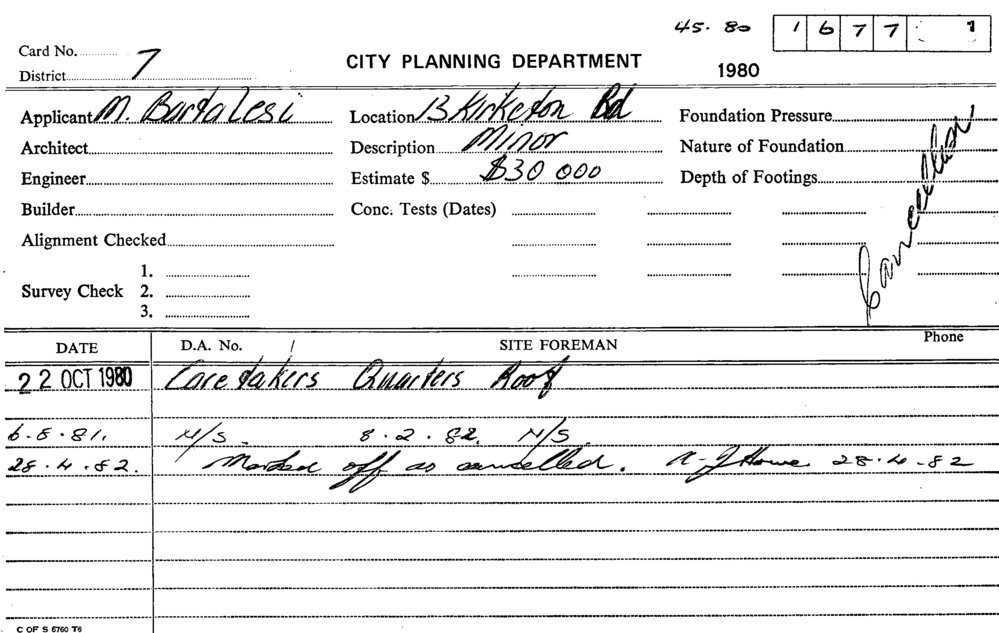 45·80 1 6 7 7 1
Card No.
District 7
CITY PLANNING DEPARTMENT
1980
Applicant M. Bartalesi Location 13 Kirketon Rd Foundation Pressure
Architect Description Minor Nature of Foundation
Engineer Estimate $ $30 000 Depth of Footings
Builder Conc. Tests (Dates)
Cancelled
Alignment Checked
Survey Check
1.
2.
3.
DATE D.A. No. SITE FOREMAN Phone
22 OCT 1980 Caretakers Quarters Roof
6·8·81. N/S. 8·2·82. N/S.
28·4·82. Marked off as cancelled. Howe 28·4·82
C OF S 6760 T6